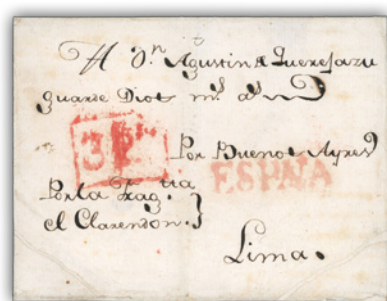 A D.n Agustin de Querejazu
guarde Dios m.s a.s
3 R.
Por Buenos Ayres
ESPNA
Por la Frag.ta
el Clarendon.}
Lima.